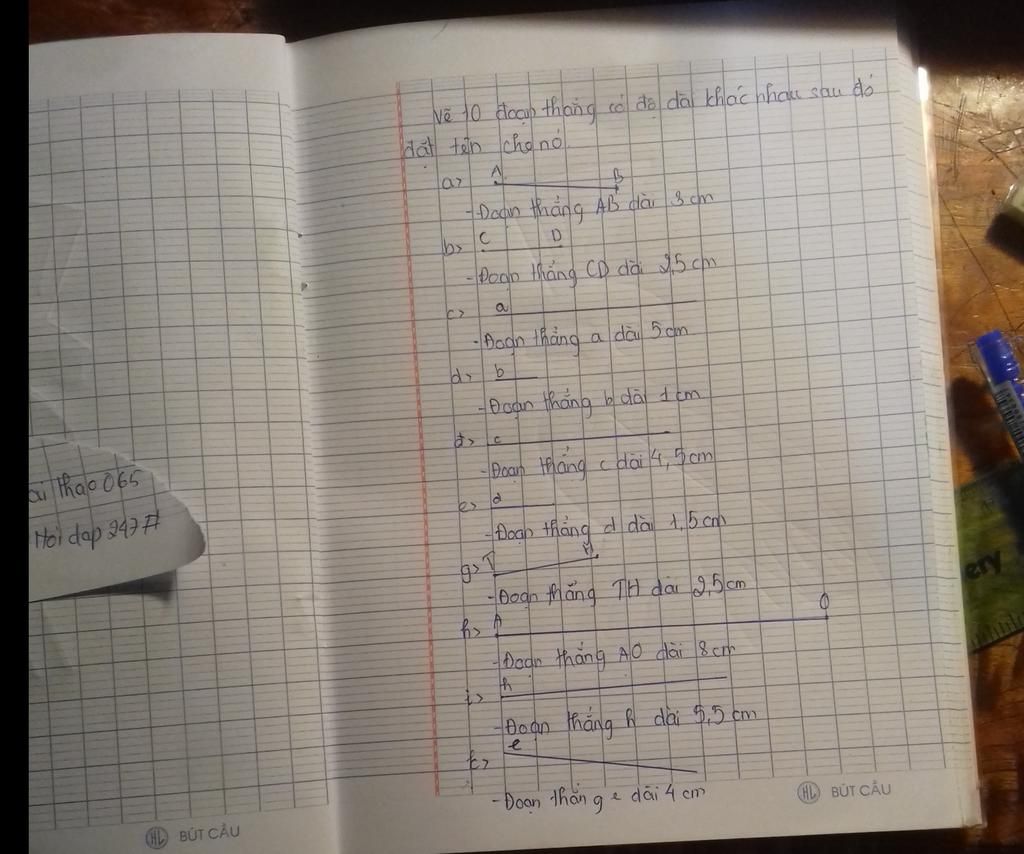 ài thao 065
Hoi dap 247 #
BÚT CẦU
Vẽ 10 đoạn thẳng có độ dài khác nhau sau đó
đặt tên cho nó.
a> A B
- Đoạn thẳng AB dài 3 cm
b> C D
- Đoạn thẳng CD dài 2,5 cm
c> a
- Đoạn thẳng a dài 5 cm
d> b
- Đoạn thẳng b dài 1 cm
đ> c
- Đoạn thẳng c dài 4,5 cm
e> d
- Đoạn thẳng d dài 1,5 cm
g> T H
- Đoạn thẳng TH dài 2,5 cm
h> A O
- Đoạn thẳng AO dài 8 cm
i> h
- Đoạn thẳng h dài 5,5 cm
k> e
- Đoạn thẳng e dài 4 cm
BÚT CẦU
ery